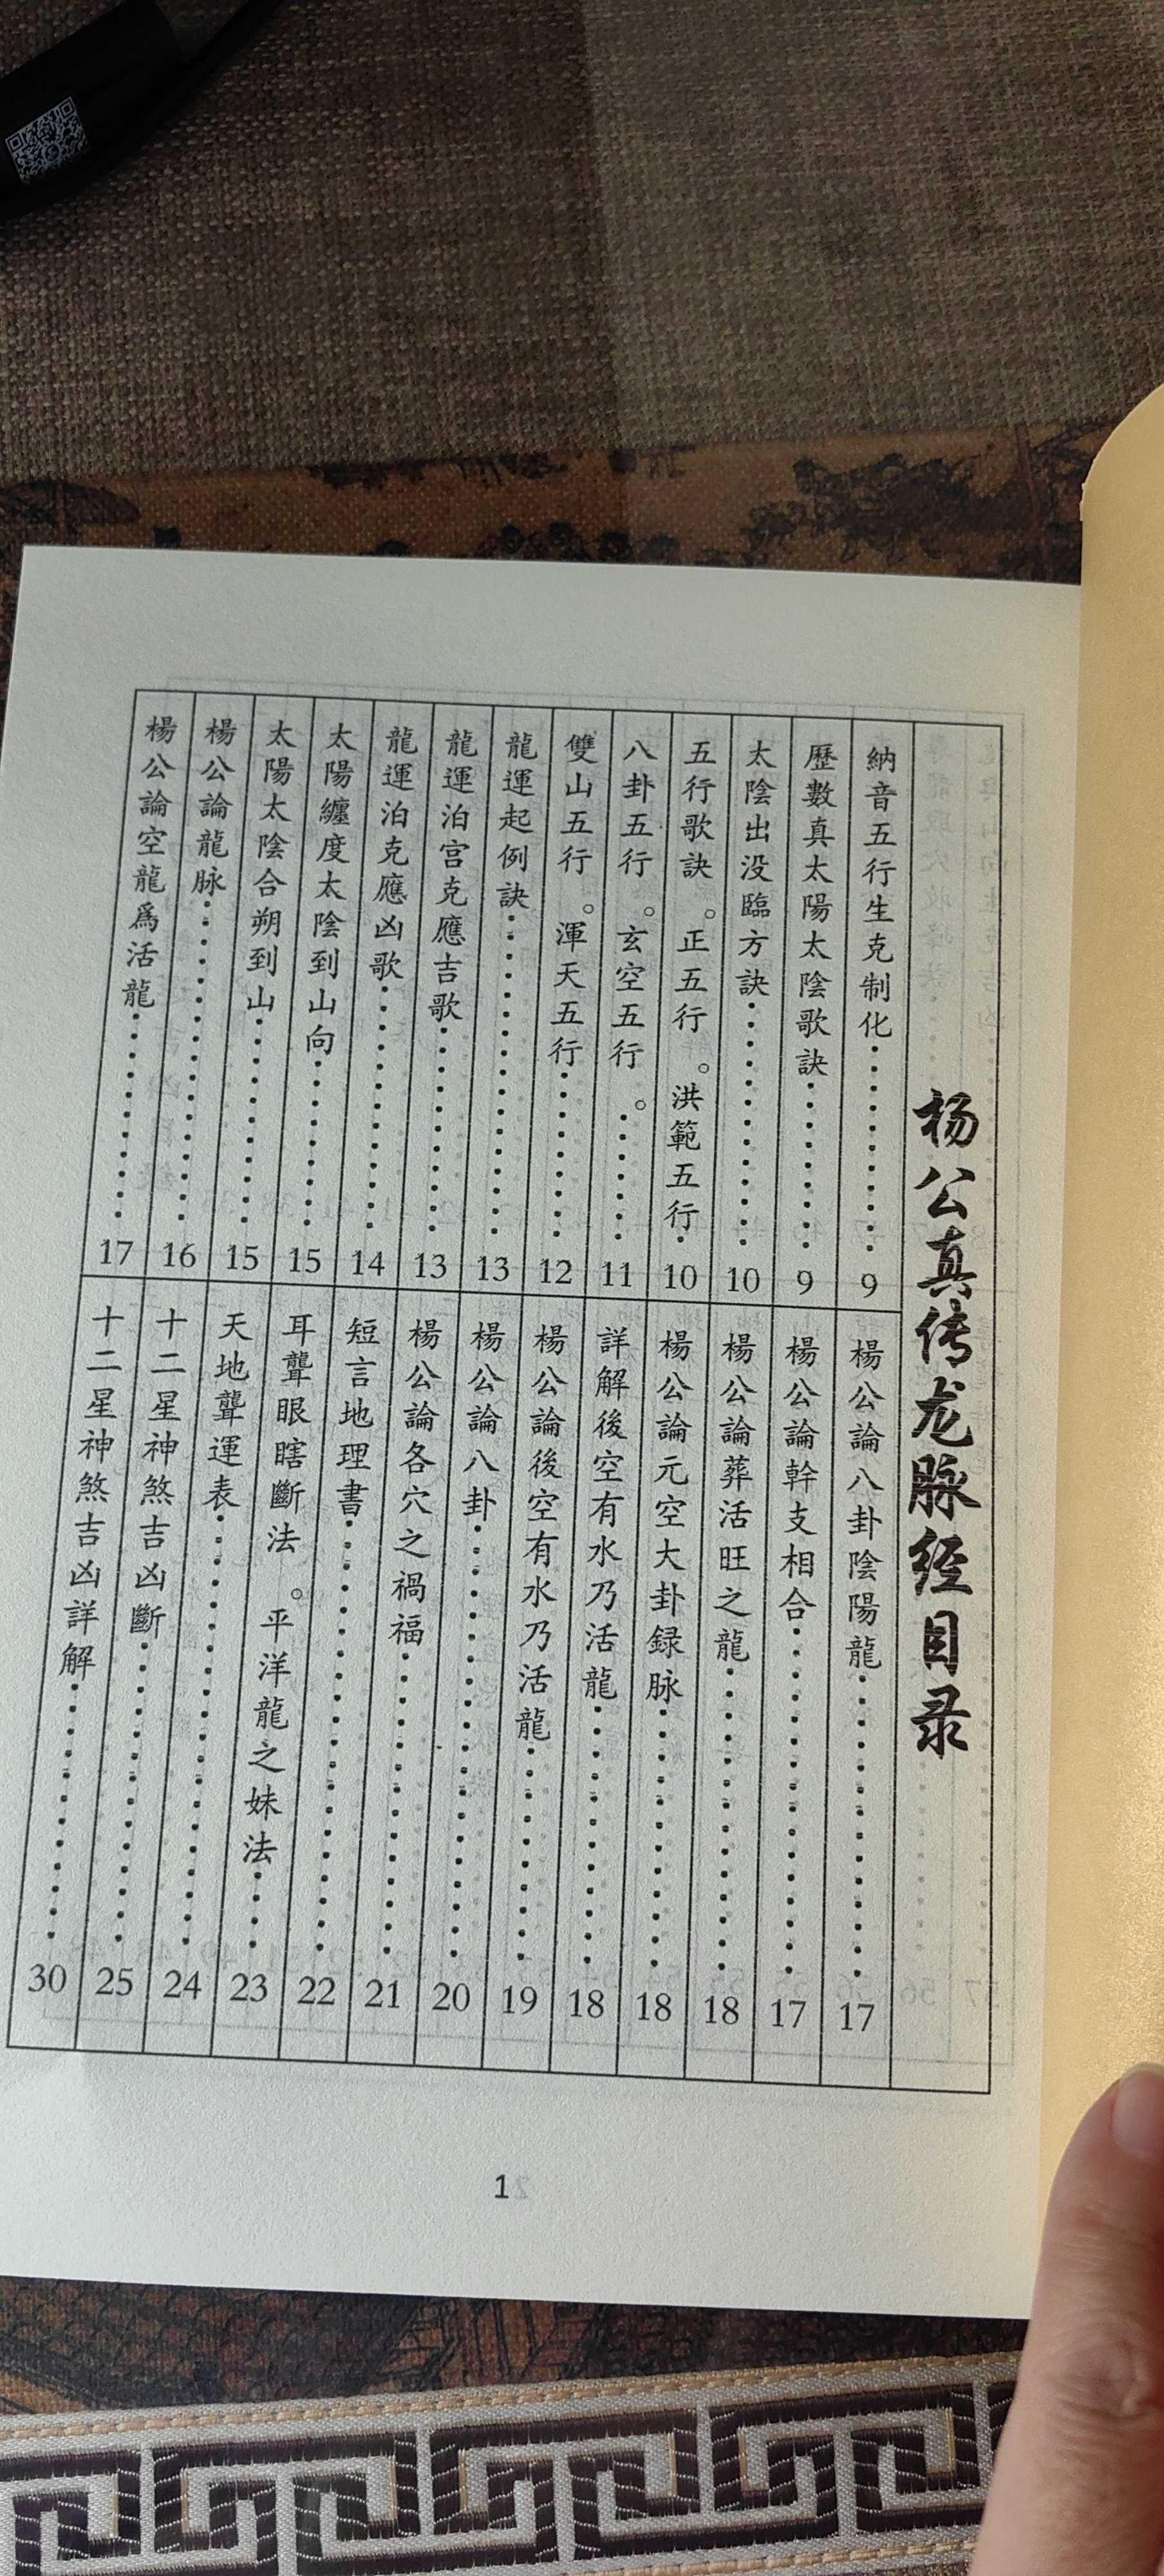 杨公真传龙脉经目录
納音五行生克制化⋯⋯⋯9
歷數真太陽太陰歌訣⋯⋯⋯9
太陰出没臨方訣⋯⋯⋯10
五行歌訣。正五行。洪範五行⋯10
八卦五行。玄空五行。⋯⋯⋯11
雙山五行。渾天五行⋯⋯⋯12
龍運起例訣⋯⋯⋯13
龍運泊宫克應吉歌⋯⋯⋯13
龍運泊克應凶歌⋯⋯⋯14
太陽纏度太陰到山向⋯⋯⋯15
太陽太陰合朔到山⋯⋯⋯15
楊公論龍脉⋯⋯⋯16
楊公論空龍爲活龍⋯⋯⋯17
楊公論八卦陰陽龍⋯⋯⋯17
楊公論幹支相合⋯⋯⋯17
楊公論葬活旺之龍⋯⋯⋯18
楊公論元空大卦録脉⋯⋯⋯18
詳解後空有水乃活龍⋯⋯⋯18
楊公論後空有水乃活龍⋯⋯⋯19
楊公論八卦⋯⋯⋯20
楊公論各穴之禍福⋯⋯⋯21
短言地理書⋯⋯⋯22
耳聾眼瞎斷法。平洋龍之妹法⋯⋯⋯23
天地聾運表⋯⋯⋯24
十二星神煞吉凶斷⋯⋯⋯25
十二星神煞吉凶詳解⋯⋯⋯30
1